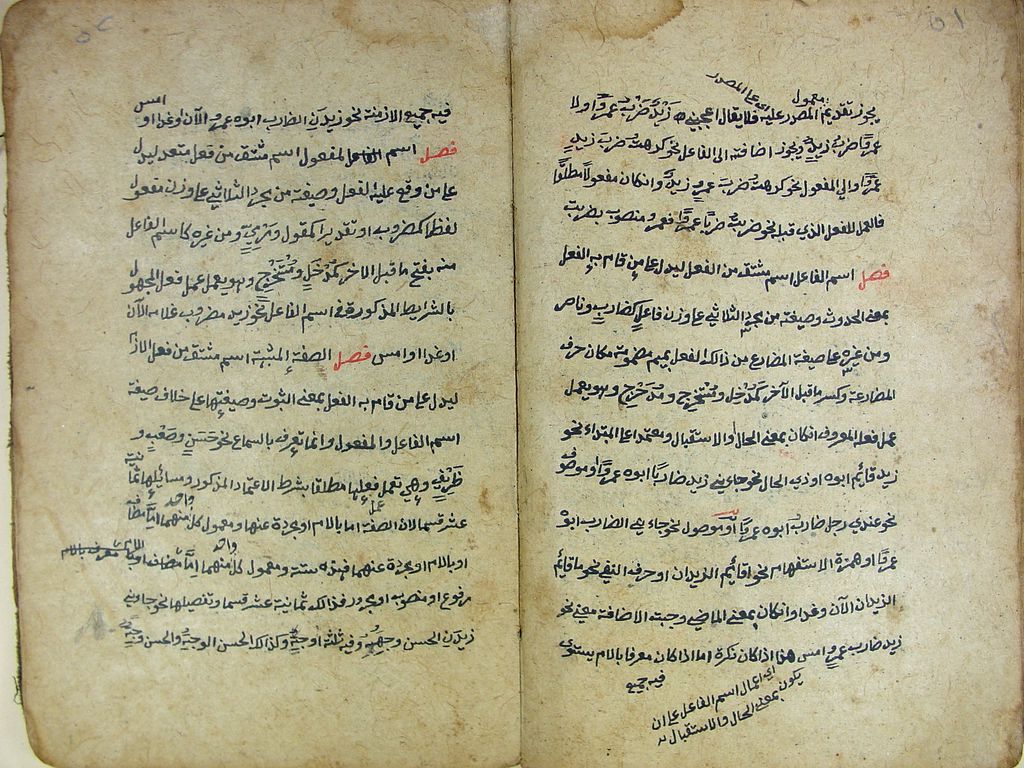 ٥١
معمول
اي على المصدر
يجوز تقديم المصدر عليه فلا يقال اعجبني زيد ضرب عمرًا ولا
عمرًا ضرب زيد ويجوز اضافته الى الفاعل نحو كرهت ضرب زيدٍ
عمرًا والى المفعول نحو كرهت ضرب عمرٍو زيدٌ وانكان مفعولًا مطلقًا
فالعمل للفعل الذي قبله نحو ضربت ضربًا عمرًا فعمرو منصوب بضربت
فصل اسم الفاعل اسم مشتق من الفعل ليدل على من قام به الفعل
بمعنى الحدوث وصيغته من مجرد الثلاثي على وزن فاعل كضاربٍ وناصر
ومن غيره على صيغة المضارع من ذالك الفعل بميم مضمومة مكان حرف
المضارعة وكسر ما قبل الآخر كمُدخِل ومُستَخرِج ومُدَحرِج وهو يعمل
عمل فعله المعروف انكان بمعنى الحال والاستقبال ومعتمدا على المبتداء نحو
زيد قائم ابوه او ذي الحال نحو جاءني زيد ضاربًا ابوه عمرًا او موصوف
نحو عندي رجل ضارب ابوه عمرًا او موصول نحو جاءني الضارب ابوه
عمرًا او همزة الاستفهام نحو اقائم الزيدان او حرف النفي نحو ما قائم
الزيدان الآن وغدا وانكان بمعنى الماضي وجبت الاضافة معنى نحو
زيد ضارب عمرٍو امس هذا اذا كان نكرة اما اذا كان معرفا بالام يستوي
فيه جميع
اي اعمال اسم الفاعل على ان
يكون بمعنى الحال والاستقبال
٥٢
فيه جميع الازمنة نحو زيدن الضارب ابوه عمرو الآن وغدا او امس
فصل اسم المفعول اسم مشتق من فعل متعد ليدل
على من وقع عليه الفعل وصيغته من مجرد الثلاثي على وزن مفعول
لفظا كمضروب او تقديرا كمقول ومرميّ ومن غيره كاسم الفاعل
منه بفتح ما قبل الاخر كمُدخَلٍ ومُستخرَجٍ وهو يعمل عمل فعل المجهول
بالشرايط المذكورة في اسم الفاعل نحو زيد مضروب غلامه الآن
او غدا او امس فصل الصفة المشبهة اسم مشتق من فعل لازم
ليدل على من قام به الفعل بمعنى الثبوت وصيغتها على خلاف صيغة
اسم الفاعل والمفعول وانما تعرف بالسماع نحو حَسَنٍ وصَعْبٍ و
ظَرِيفٍ وهي تعمل عمل فعلها مطلقا بشرط الاعتماد المذكور ومسائلها ثمانية
عشر قسما لان الصفة اما بالام او مجردة عنها ومعمول كل واحد منهما اما مضاف
او بالام او مجردة عنهما فهذه ستة ومعمول كل واحد منهما اما
مرفوع او منصوب او مجرور فذالك ثمانية عشر قسما وتفصيلها نحو جاءني
زيدن الحسن وجهه وفيه ثلثة اوجه وكذالك الحسن الوجه والحسن وجه